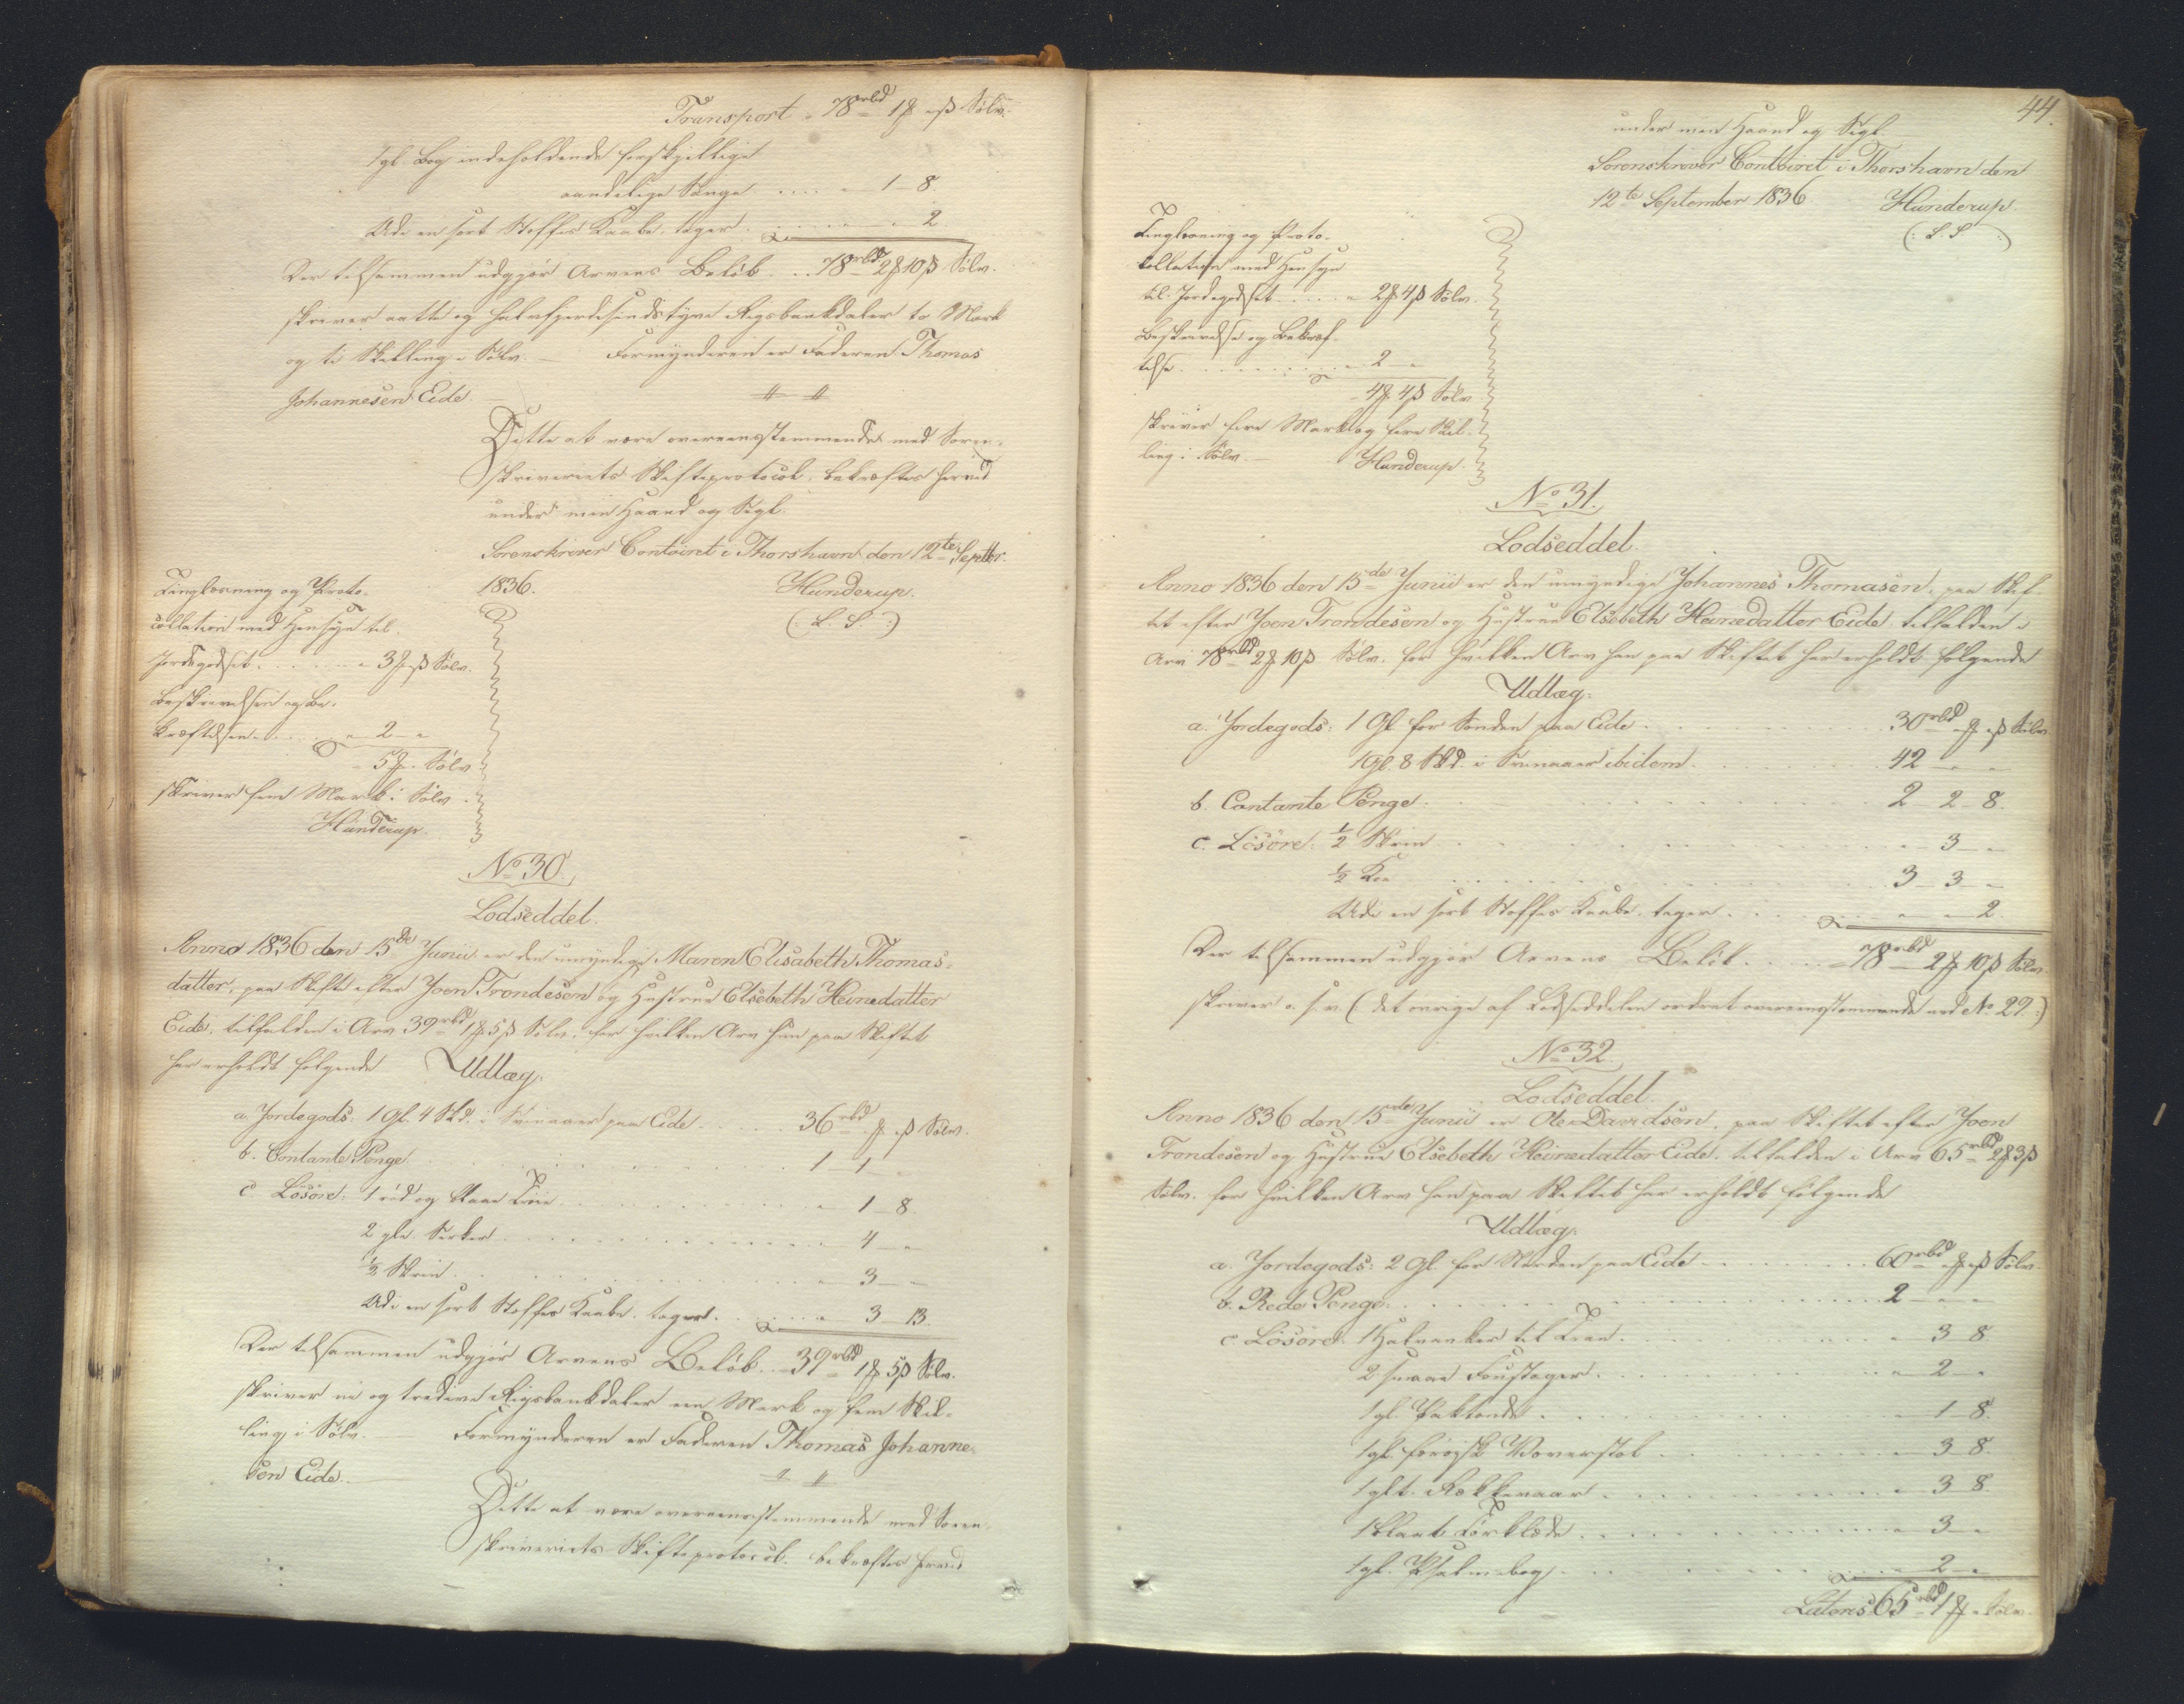 Transport „ 78 rbd 1 ₰ „ ß Sølv.
1 gl. Bog indeholdende forskjellige
aandelige Sange . . . . „ 1 – 8.
Udi en sort Stoffes Kaabe, tager . . . . „ „ 2.
Der tilsammen udgjør Arvens Beløb . . 78 rbd 2 ₰ 10 ß Sølv.
skriver aatte og halvfjerdesindstyve Rigsbankdaler to Mark
og ti Skilling i Sølv. — Formynderen er Faderen Thomas
Johannesen Eide. —
Dette at være overeensstemmende med Soren-
skriveriets Skifteprotocol, bekræftes herved
under min Haand og Segl.
Sorenskriver Contoiret i Thorshavn den 12te Septbr.
1836. Hunderup.
(: L. S :)
Tinglæsning og Proto-
collation med Hensyn til
Jordegodset . . . . . „ 3 ₰ „ ß Sølv.
Beskrivelsen og Be-
kræftelsen . . . . . „ 2 – „
„ 5 ₰ „ Sølv
skriver fem Mark i Sølv.
Hunderup.
No 30.
Lodseddel.
Anno 1836 den 15de Junii er den umyndige Maren Elisabeth Thomas-
datter, paa Skifte efter Joen Trondesen og Hustrue Elsebeth Heinedatter
Eide, tilfalden i Arv 39 rbd 1 ₰ 5 ß Sølv, for hvilken Arv hun paa Skiftet
har erholdt følgende Udlæg:
a. Jordegods: 1 Gl. 4 Skd. i paa Eide . . . . . 36 rbd „ ₰ „ ß Sølv.
b. Contante Penge . . . . . 1 – 1 – „
c. Løsøre: 1 rød og blaae Trøie . . . . . „ 1 – 8.
2 gle. Særker . . . . . „ 4 – „
½ Skrin . . . . . „ 3 – „
Udi en sort Stoffes Kaabe, tager . . . . „ 3 – 13.
Der tilsammen udgjør Arvens Beløb . . 39 rbd 1 ₰ 5 ß Sølv.
skriver ni og tredive Rigsbankdaler een Mark og fem Skil-
ling i Sølv. — Formynderen er Faderen Thomas Johanne-
sen Eide. —
Dette at være overeensstemmende med Soren-
skriveriets Skifteprotocol, bekræftes herved
44.
under min Haand og Segl.
Sorenskriver Contoiret i Thorshavn den
12te September 1836. Hunderup.
(: L. S :)
Tinglæsning og Proto-
collation med Hensyn
til Jordegodset . . . . „ 2 ₰ 4 ß Sølv.
Beskrivelse og Bekræf-
telse . . . . . „ 2 – „
„ 4 ₰ 4 ß Sølv
skriver fire Mark og fire Skil-
ling i Sølv. — Hunderup.
No 31.
Lodseddel.
Anno 1836 den 15de Junii er den umyndige Johannes Thomasen, paa Skif-
tet efter Joen Trondesen og Hustrue Elsebeth Heinedatter Eide tilfalden i
Arv 78 rbd 2 ₰ 10 ß Sølv, for hvilken Arv han paa Skiftet har erholdt følgende
Udlæg:
a. Jordegods: 1 Gl. for Sønden paa Eide . . . . . 30 rbd „ ₰ „ ß Sølv
1 Gl. 8 Skd. i ibidem . . . . . 42 – „ – „
b. Contante Penge . . . . . 2 – 2 – 8.
c. Løsøre: ½ Skrin . . . . . „ – 3 – „
½ Koe . . . . . 3 – 3 – „
Udi en sort Stoffes Kaabe, tager . . . . „ – „ – 2.
Der tilsammen udgjør Arvens Beløb . . . . 78 rbd 2 ₰ 10 ß Sølv.
skriver o. s. v. (: det øvrige af Lodseddelen ordret overeensstemmende med No 29 :)
No 32.
Lodseddel.
Anno 1836 den 15de Junii er Ole Davidsen, paa Skiftet efter Joen
Trondesen og Hustrue Elsebeth Heinedatter Eide, tilfalden i Arv 65 rbd 2 ₰ 3 ß
Sølv, for hvilken Arv han paa Skiftet har erholdt følgende
Udlæg:
a. Jordegods: 2 Gl. for Norden paa Eide . . . . . 60 rbd „ ₰ „ ß Sølv
b. Rede Penge . . . . . 2 – „ – „
c. Løsøre: 1 Halvanker til Tran . . . . . „ 3 8
2 smaae Foustager . . . . . „ 2 – „
1 gl. . . . . . „ 1 – 8.
1 gl. færøisk Væverstol . . . . . „ 3 8.
1 glt. . . . . . „ 3 8.
1 blaat Tørklæde . . . . . „ 3 – „
1 gl. Psalmebog . . . . . „ 2 – „
Lateris 65 rbd 1 ₰ „ Sølv.